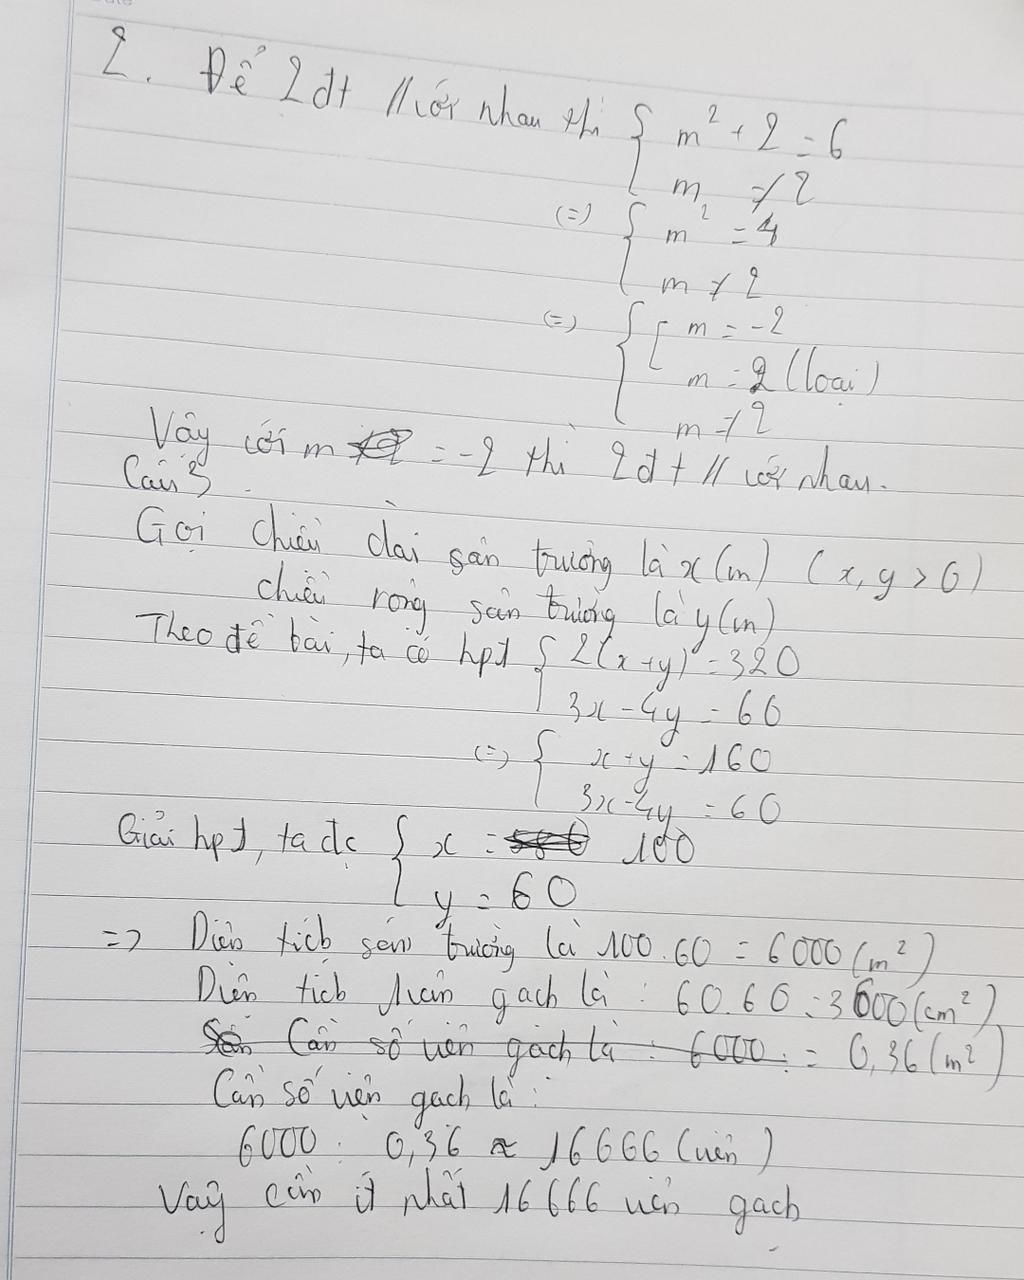 2. Để 2đt // với nhau thì { m² + 2 = 6
m ≠ 2
(=) { m² = 4
m ≠ 2
(=) { [ m = -2
m = 2 (loại)
m ≠ 2
Vậy với m = -2 thì 2đt // với nhau.
Câu 3.
Gọi chiều dài sân trường là x(m) (x, y > 0)
chiều rộng sân trường là y(m)
Theo đề bài, ta có hpt { 2(x+y) = 320
3x - 4y = 60
(=) { x + y = 160
3x - 4y = 60
Giải hpt, ta đc { x = 100
y = 60
=> Diện tích sân trường là 100.60 = 6000 (m²)
Diện tích viên gạch là : 60.60 = 3600 (cm²)
Cần số viên gạch là : 6000 : = 0,36 (m²)
Cần số viên gạch là :
6000 : 0,36 ≈ 16666 (viên)
Vậy cần ít nhất 16666 viên gạch